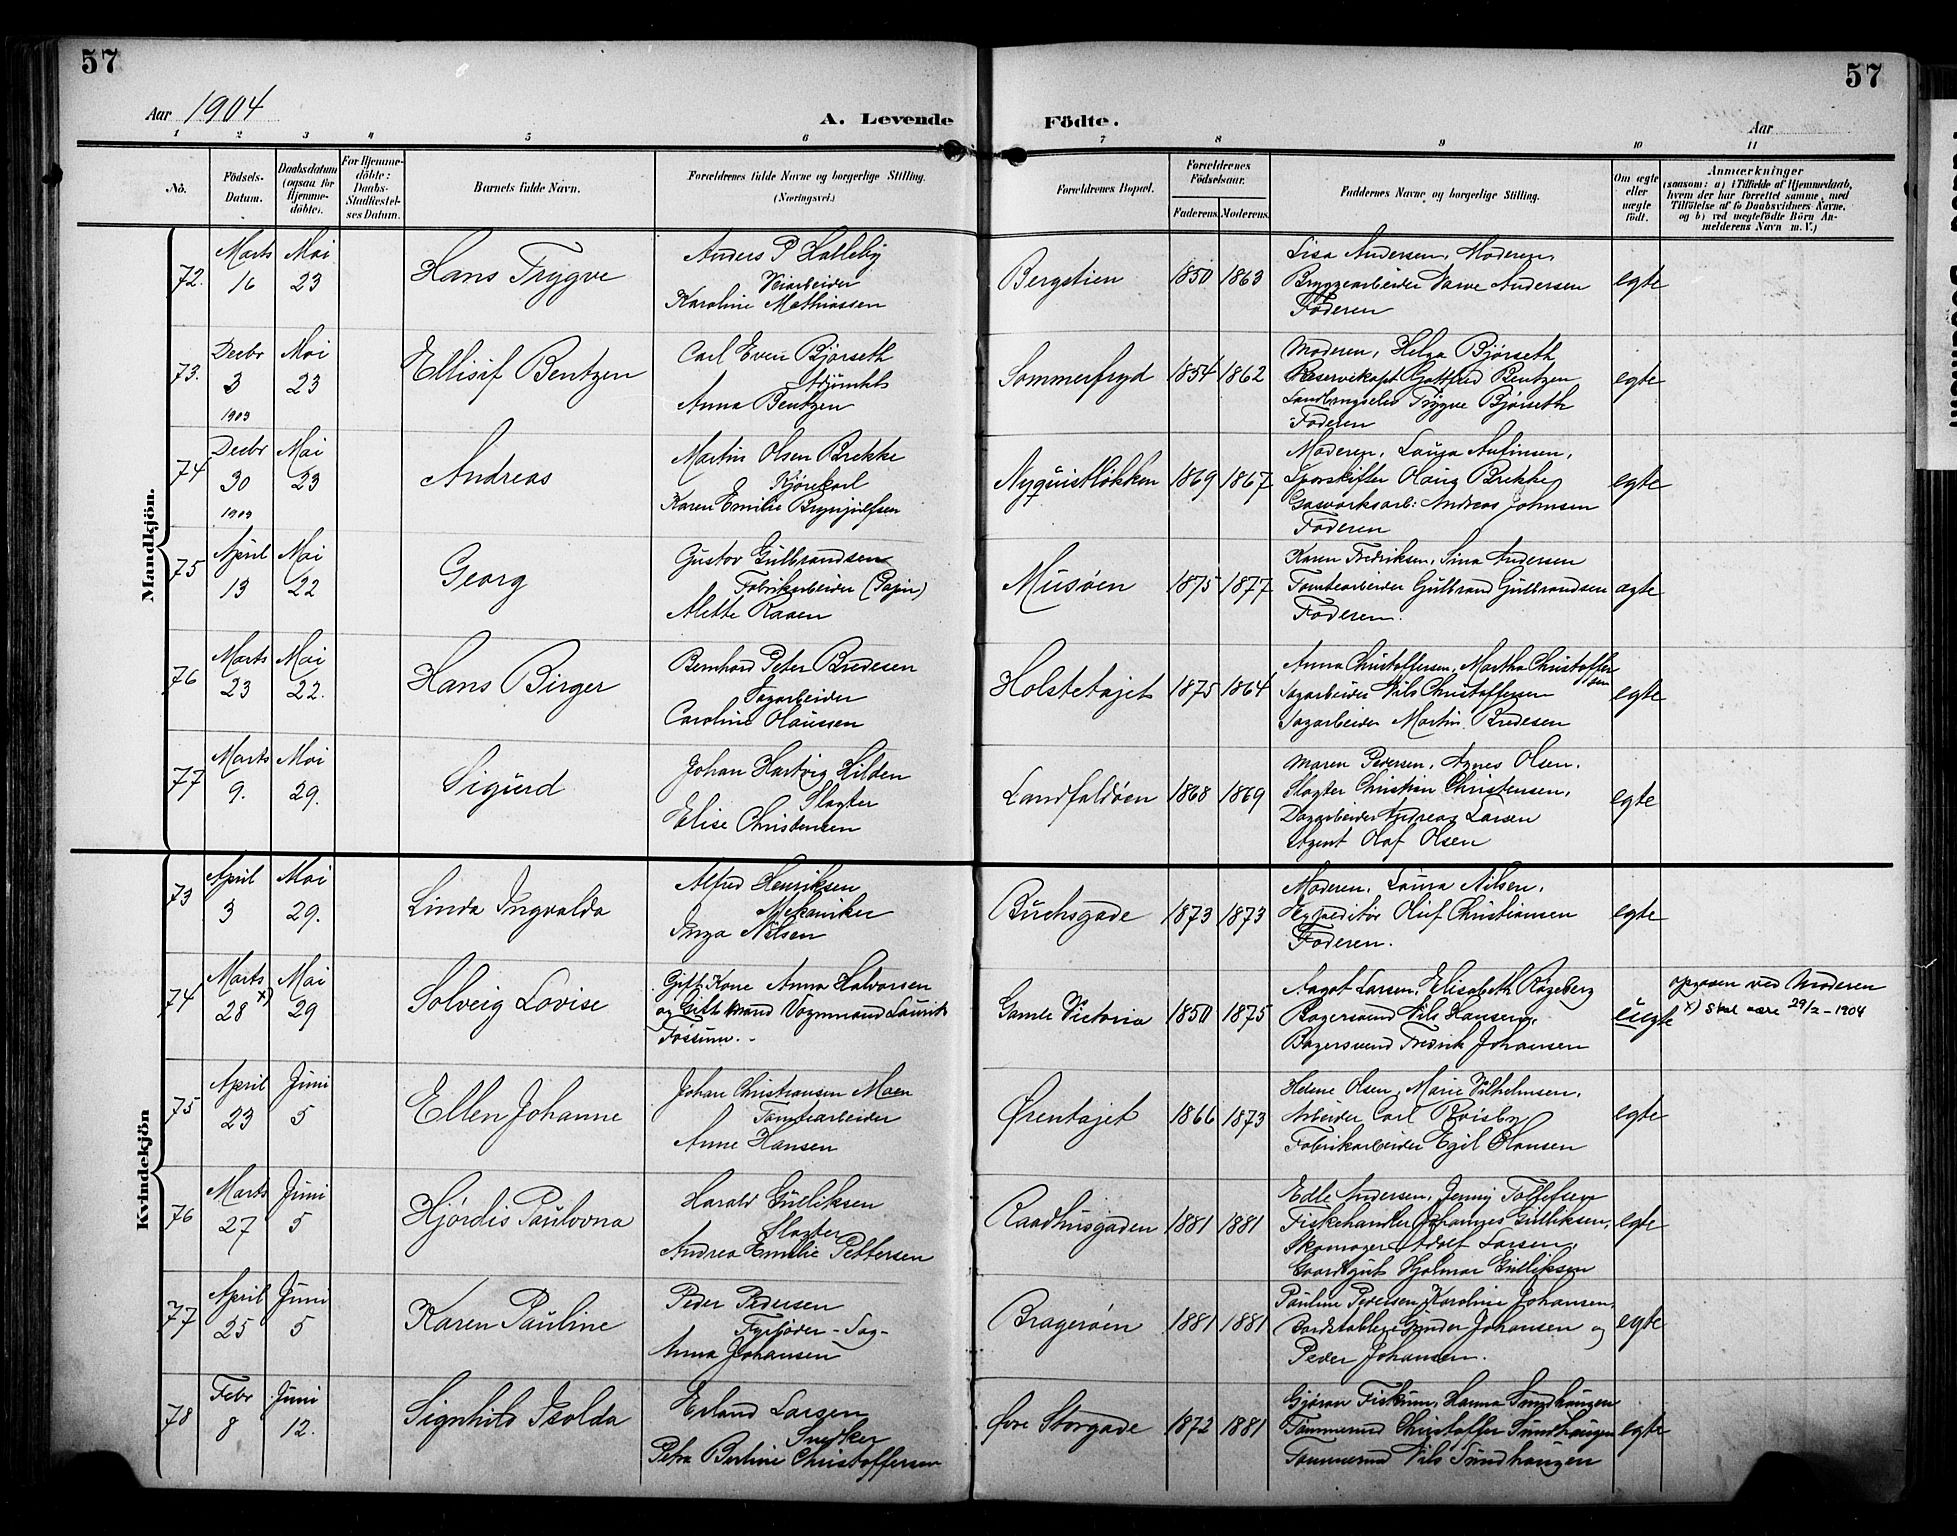 57
57
Aar 1904
A. Levende
Födte.
Aar
1 2 3 4 5 6 7 8 9 10 11
No.
Födsels-
Datum.
Daabsdatum
(ogsaa for
Hjemme-
döbte).
For Hjemme-
döbte:
Daabs-
Stadfæstel-
ses Datum.
Barnets fulde Navn.
Forældrenes fulde Navne og borgerlige Stilling.
(Næringsvei.)
Forældrenes Bopæl.
Forældrenes
Födselsaar.
Faderens. Moderens.
Faddernes Navne og borgerlige Stilling.
Om ægte
eller
uægte
födt.
Anmærkninger
(saasom: a) i Tilfælde af Hjemmedaab,
hvem der har forrettet samme, med
Tilföielse af to Daabsvidners Navne.
og b) ved uægtefödte Börn An-
melderens Navn m. V.)
Mandkjön.
72.
Marts
16
Mai
23
Hans Trygve
Anders P Halleby
Veiarbeider
Karoline Mathiassen
Bergstien
1850
1863
Lisa Andersen, Moderen,
Bryggearbeider Andersen
Faderen
egte
73.
Decbr
3
1903
Mai
23
Ellisif Bentzen
Carl Even Bjørseth
Adjunkt
Anna Bentzen
Sommerfryd
1854
1862
Moderen, Helga Bjørseth
Reservekapt Gottfred Bentzen
Landbrugselev Trygve Bjørseth
Faderen
egte
74
Decbr
30
1903
Mai
23
Andreas
Martin Olsen Brekke
Kjørekarl
Karen Emilie Brynjulfsen
Nyquistløkken
1869
1867
Moderen, Laura Anfinsen,
Sporskifter Olaus Brekke
Gasværksarb: Andreas Johnsen
Faderen
egte
75
April
13
Mai
22
Georg
Gustav Gulbrandsen
Fabrikarbeider (Papir)
Alette Raaen
Musøen
1875
1877
Karen Fredriksen, Sina Andersen
Tomtearbeider Gulbrand Gulbrandsen
Faderen.
ægte
76
Marts
23
Mai
22.
Hans Birger
Bernhard Peter Bredesen
Sagarbeider
Caroline Olaussen
Holstetajet
1875
1864
Anna Christoffersen, Martha Christoffer
sen
Sagarbeider Nils Christoffersen
Sagarbeider Martin Bredesen
egte
77
Marts
9.
Mai
29.
Sigurd
Johan Hartvig Hilden
Slagter
Elise Christensen
Landfaldøen
1868
1869
Maren Pedersen, Agnes Olsen,
Slagter Christian Christensen,
Dagarbeider Andreas Larsen
Agent Olaf Olsen
egte
Kvindekjön
73
April
3
Mai
29.
Linda Ingvalda
Alfred Henriksen
Mekaniker
Inga Nilsen
Buchsgade
1873
1873
Moderen, Laura Nilsen,
Expeditør Oluf Christiansen
Faderen.
egte
74
Marts
28 x)
Mai
29
Solveig Lovise
Gift Kone Anna Halvorsen
og Gift Mand Vognmand Laurits
Fossum.
Gamle Victoria
1850
1875
Aagot Larsen, Elisabeth Rageberg
Bagersvend Nils Hansen,
Bagersvend Fredrik Johansen
uegte
opgaven ved Moderen
x) Skal være 29/2-1904
75
April
23
Juni
5
Ellen Johanne
Johan Christiansen Moen
Tomtearbeider
Anne Hansen
Ørentajet
1866
1873
Helene Olsen, Marie Vilhelmsen,
Arbeider Carl
Fabrikarbeider Egil Hansen
egte
76
Marts
27
Juni
5
Hjørdis Paulovna
Harald Gulliksen
Slagter
Andrea Emilie Pettersen
Raadhusgaden
1881
1881
Edle Andersen, Jenny Tollefsen
Fiskehandler Johannes Gulliksen,
Skomager Adolf Larsen,
Gaardsgut Hjalmar Gulliksen
egte
77
April
25
Juni
5
Karen Pauline
Peder Pedersen
Fyrbøder - Sag-
Anna Johansen
Bragerøen
1881
1881
Pauline Pedersen, Karoline Johansen,
Bordstabler Gunder Johansen og
Peder Johansen.
egte
78
Febr
8
Juni
12.
Signhild Isolda
Erland Larsen
Snedker
Petra Bertine Christoffersen
Øvre Storgade
1872
1881
Gjøran Fiskum, Hanna Sundhaugen
Tømmermd Christoffer Sundhaugen
Tømmermd Nils Sundhaugen
egte